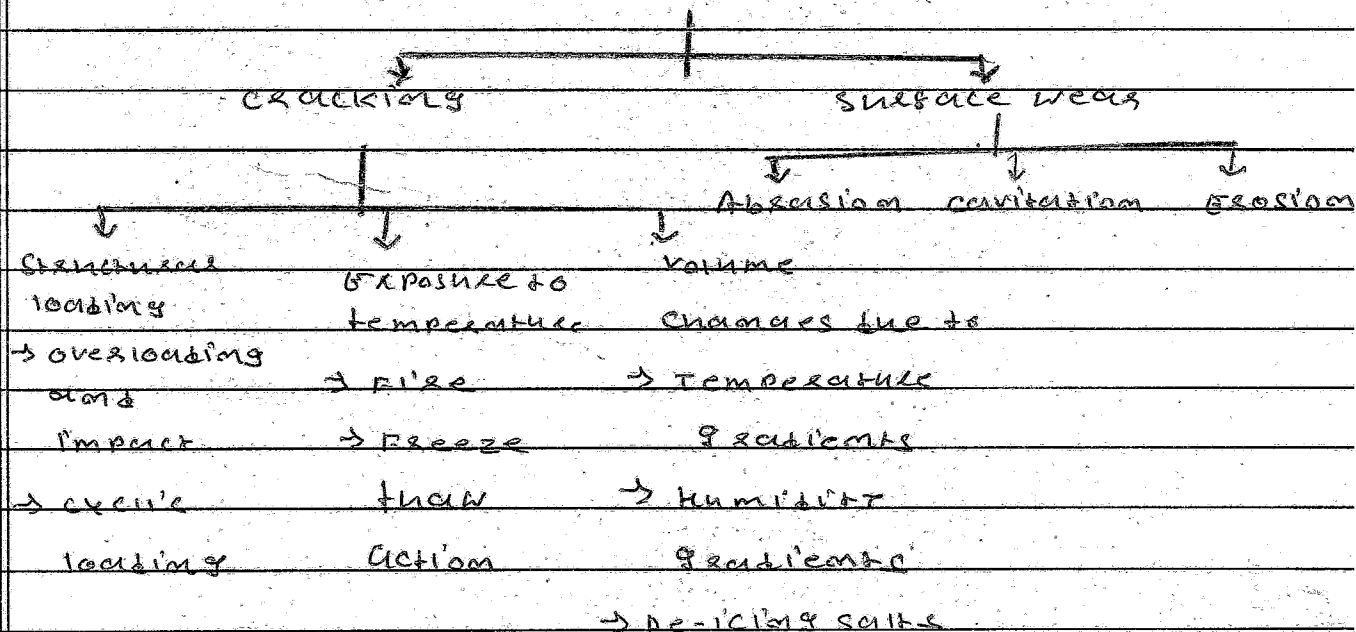 cracking
surface wear
Abrasion cavitation Erosion
Structural
loading
→ overloading
and
impact
→ cyclic
loading
Exposure to
temperature
→ Fire
→ Freeze
thaw
action
volume
changes due to
→ Temperature
gradients
→ Humidity
gradients
→ De-icing salts